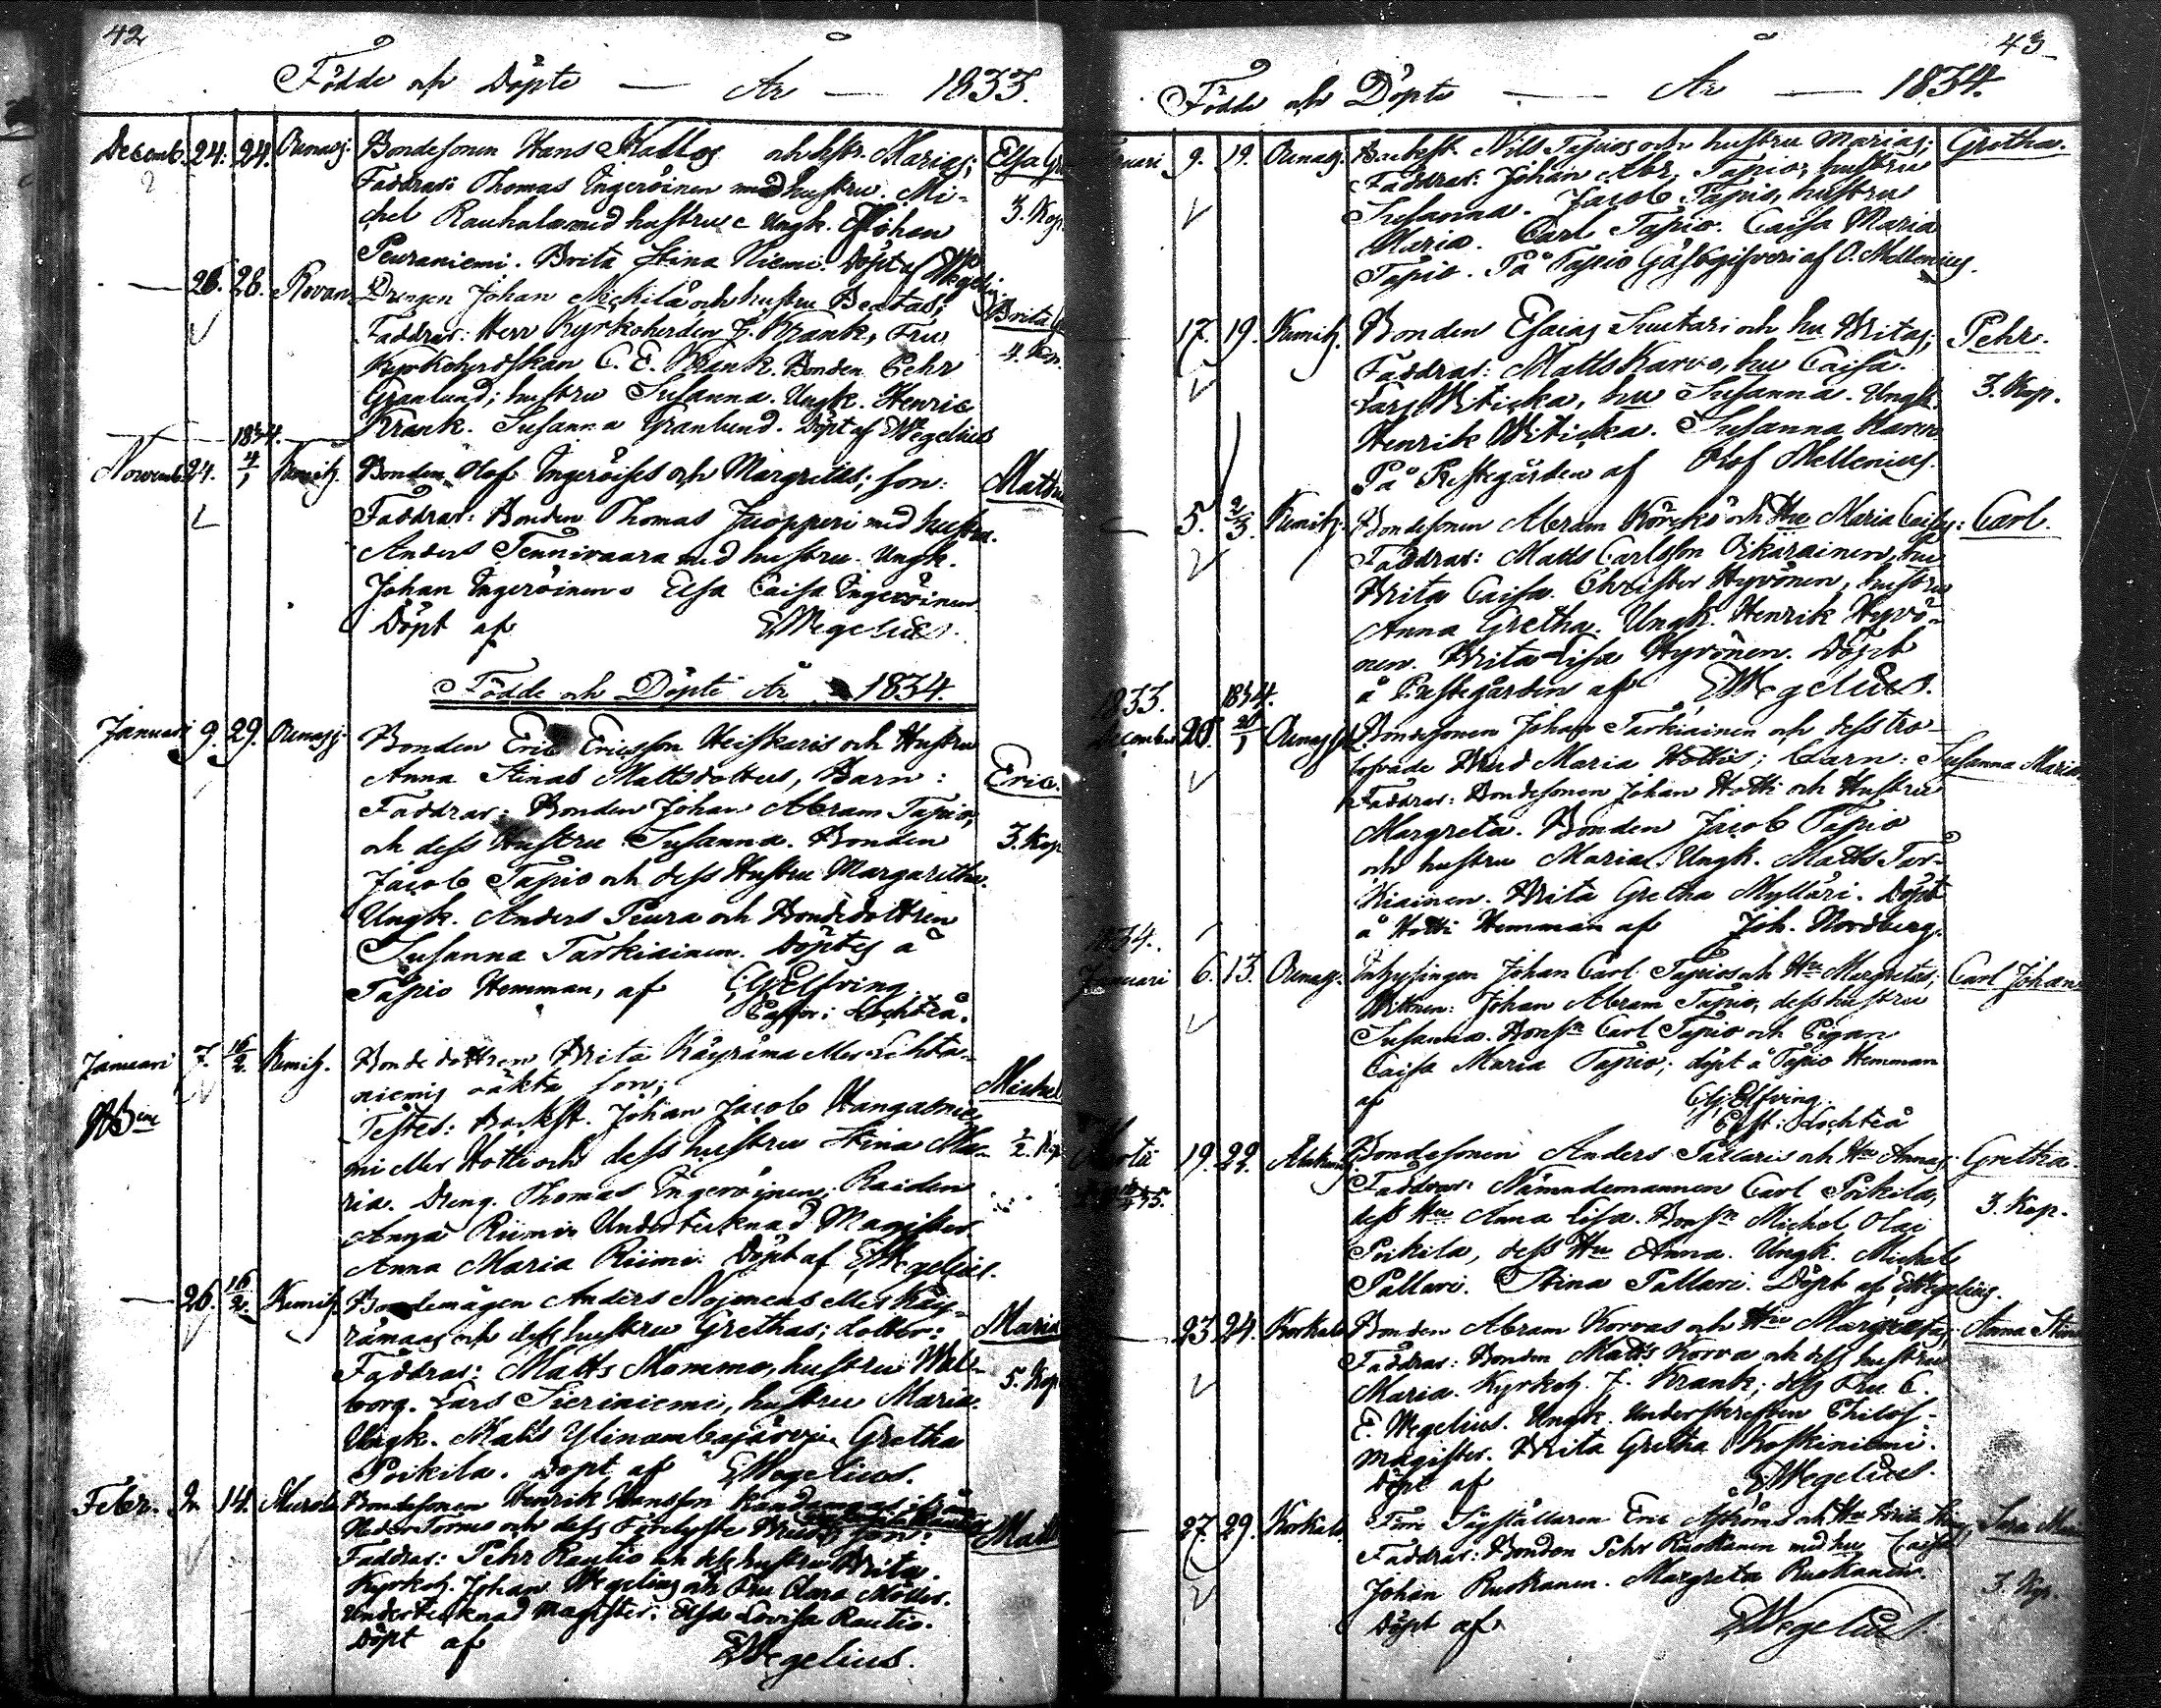 42
Födde och Döpte — År — 1833.
Decemb. 24. 24. Bondesonen Hans Kallos och hstr. Marias; Elsa
Faddrar: Thomas Ingeröinen med hustru. Mi-
chel Rauhala med hustru. Ungk. Johan 3. Kop.
Peuraniemi. Brita Stina Niemi. Döpt af Wegelius
— 26. 28. Rovan. Drengen Johan Mickilä och hustru Beatas; Brita
Faddrar: Herr Kyrkoherden J. Krank, Fru
Kyrkoherdskan C. E. Krank. Bonden Pehr
Granlund; hustru Susanna. Ungk. Henric
Krank. Susanna Granlund. Döpt af EWegelius
1834.
Novemb. 24. 4/1 Kemitz. Bonden Olof Ingeröises och Margretas; son:
Faddrar: Bonden Thomas Juopperi med hustru.
Anders Tennivaara med hustru. Ungk.
Johan Ingeröinen. Elsa Caisa Ingeröinen
Döpt af EWegelius.
Födde och Döpte År 1834.
Januari 9. 29. Bonden Eric Ericsson Heiskaris och Hustru
Anna Stinas Mattsdotters, Barn: Eric.
Faddrar: Bonden Johan Abram Tapio,
och dess Hustru Susanna. Bonden 3. Kop
Jacob Tapio och dess Hustru Margaretha.
Ungk. Anders Peura och Bondedottren
Susanna Tarkiainen. Döptes å
Tapio Hemman, af Elfving.
Pastor i Lochteå.
Januari 7. 16/2. Kemitz. Bondedottren Brita Käyräma eller Lehta-
niemis oäkta son; Michel
Testes: Johan Jacob Kangasnie-
mi eller Hotti och dess hustru Stina Ma-
ria. Dreng. Thomas Ingeröinen,
Anna Riimi. Undertecknad Magister.
Anna Maria Riimi. Döpt af EWegelius.
— 26. 16/2. Kemitz. Bondemågen Anders Nojoneas eller Käy-
rämaas och dess hustru Grethas; dotter: Maria
Faddrar: Matts Mommo, hustru Wal-
borg. Lars Sieriniemi, hustru Maria. 5. Kop
Ungk. Matts Ylinambajärvi. Gretha
Poikila. Döpt af EWegelius.
Febr. 14. Murola Bondesonen Henrik Hansson
Neder Torneo och dess Förelyste Bruds son:
Faddrar: Pehr Rautio och dess hustru Brita.
Kyrkoh. Johan Wegelius och Fru Clara Möller.
Undertecknad Magister. Elsa Lovisa Rautio.
Döpt af EWegelius.
43
Födde och Döpte — År — 1834.
9. 19. Nils Tapios och hustru Marias; Gretha.
Faddrar: Johan Abr. Tapio, hustru
Susanna. Jacob Tapio, hustru
Maria. Carl Tapio. Caisa Maria
Tapio. På Tapio Gästgifveri af O. Mellenius.
17. 19. Kemitz. Bonden Esaias Suutari och hu Britas; Pehr.
Faddrar: Matts Karvo, hu Caisa.
Lars Witicka, hu Susanna. Ungk. 3. Kop.
Henrik Witicka. Susanna Karvo
På Prestegården af Olof Mellenius.
— 5. 2/3. Kemitz. Bondesonen Abram Körckö och Hu Maria Caisas: Carl.
Faddrar: Matts Carlsson Oikarainen, hu
Brita Caisa. Christer Hyvönen, hustru
Anna Gretha. Ungk. Henrik Hyvö-
nen. Brita Lisa Hyvönen. Döpt
å Prestegården af EWegelius.
1833. 1834.
December 28. Bondesonen Johan Tarkiainen och dess tro-
lofvade Brud Maria Hottis; Barn: Susanna Maria
Faddrar: Bondesonen Johan Hotti och Hustru
Margreta. Bonden Jacob Tapio
och hustru Maria. Ungk. Matts Tar-
kiainen. Brita Gretha Mylläri. Döpt
å Hotti Hemman af Joh. Nordberg.
1834.
Januari 6. 13. Inhysingen Johan Carl Tapios och Hu Margretas; Carl Johan
Wittnen: Johan Abram Tapio, dess hustru
Susanna. Bonsn Carl Tapio och Pigan
Caisa Maria Tapio; döpt å Tapio Hemman
af Elfving.
Past: i Lochteå
19. 22. Bondesonen Anders Pallaris och Hu Annas; Gretha.
Faddrar: Nämndemannen Carl Poikila,
dess Hu Anna Lisa. Bonsn Michel Olai 3. Kop.
Poikila, dess Hu Anna. Ungk. Michel
Pallari. Stina Pallari. Döpt af EWegelius.
— 23. 24. Korkalo Bonden Abram Korvas och Hu Margretas; Anna Stina
Faddrar: Bonden Matts Korva och dess hustru
Maria. Kyrkoh. J. Krank; dess Fru C.
E. Wegelius. Ungk. Philos.
Magister. Brita Gretha Koskiniemi.
Döpt af EWegelius.
— 27. 29. Korkalo Eric Aströms och Hu Brita Sara
Faddrar: Bonden Pehr Ruokanen med hu Caisa
Johan Ruokanen. Margreta Ruokanen. 3. Kop.
Döpt af EWegelius.